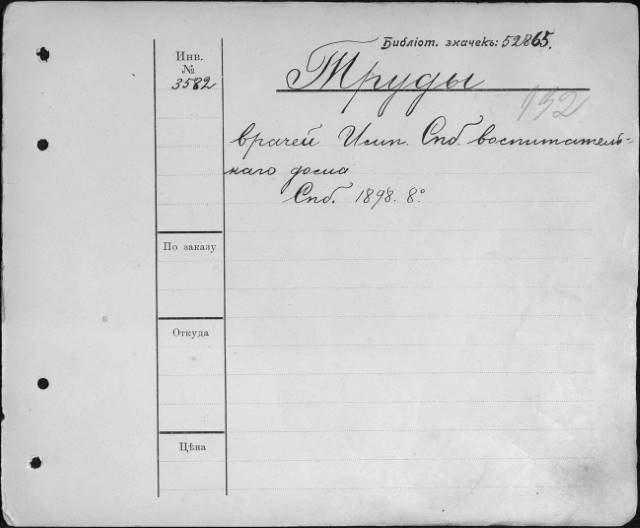 Библіот. значекъ: 52865.
Инв.
№
3582
Труды
132
врачей Имп. Спб. воспитатель-
наго дома
Спб. 1898. 8°
По заказу
Откуда
Цѣна